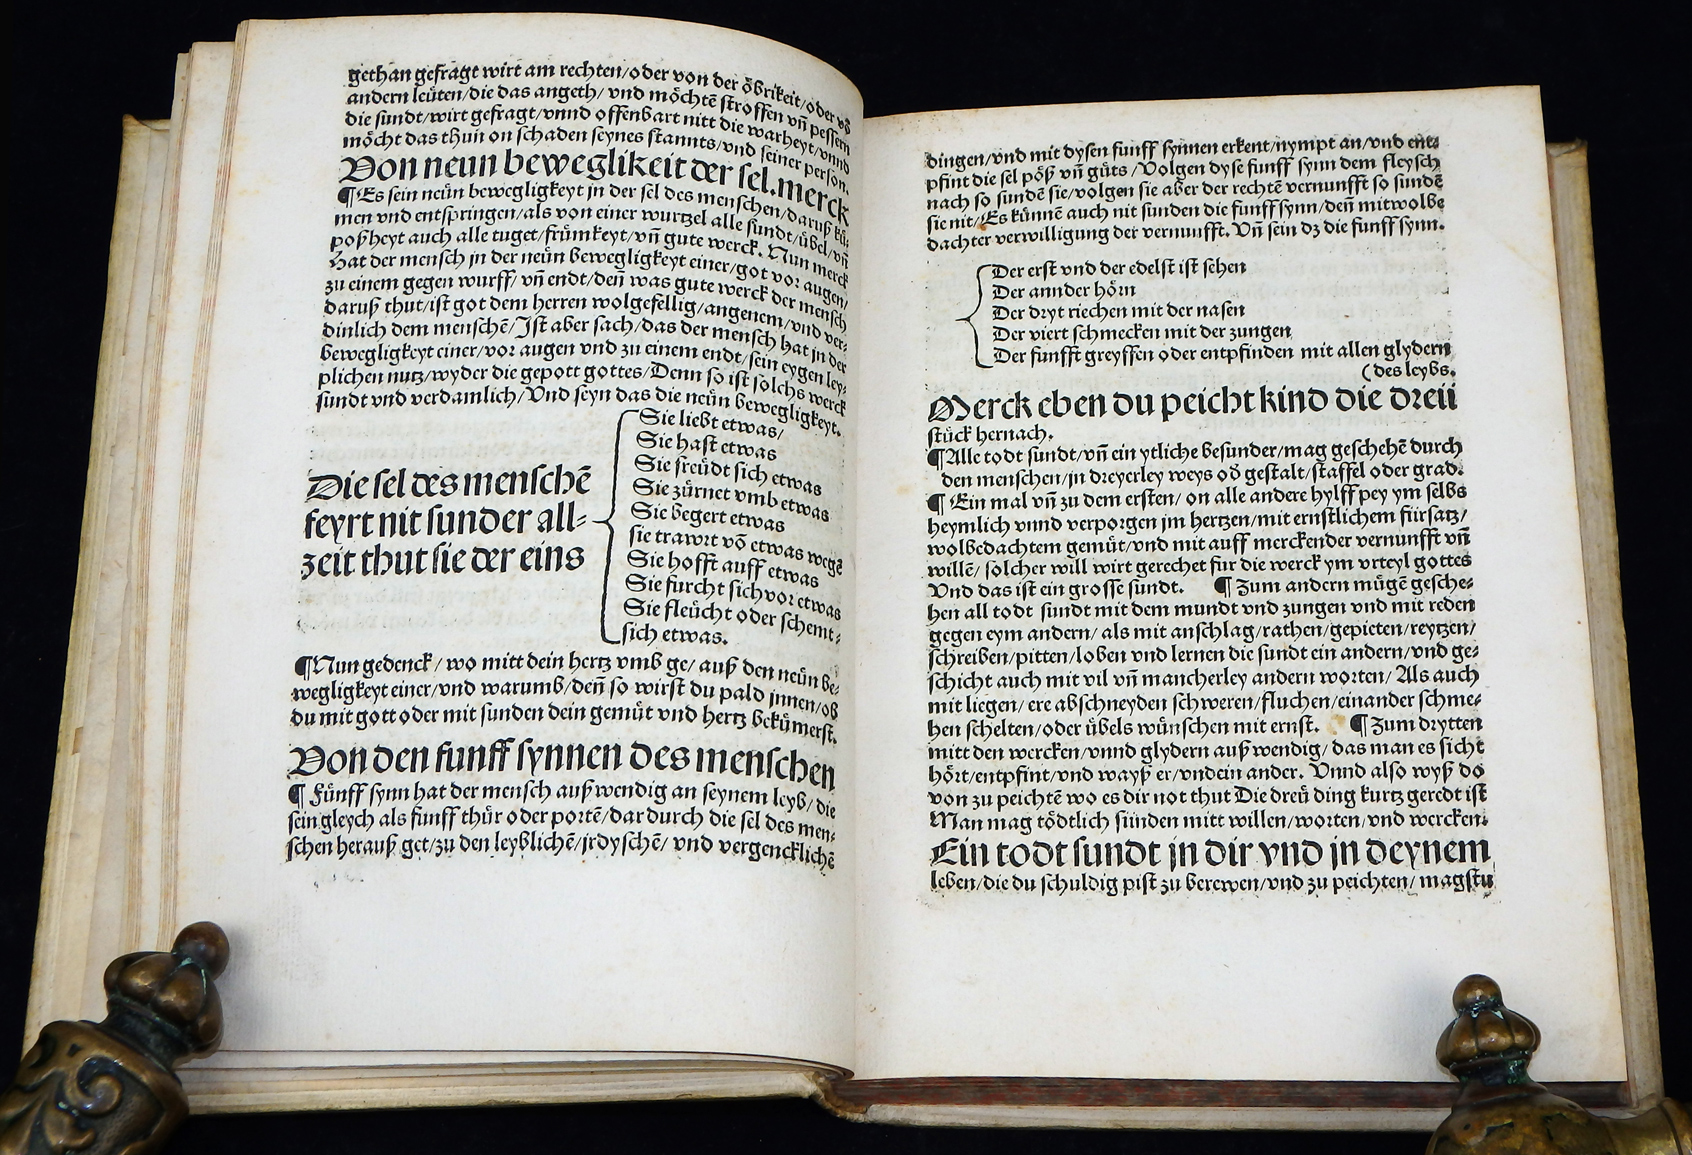 gethan gefragt wirt am rechten/oder von der öbrikeit/oder vō
andern leüten/die das angeth/vnd möchtē stroffen vn̄ pessern
die sundt/wirt gefragt/vnnd offenbart nitt die warheyt/vnnd
möcht das thun on schaden seynes stannts/vnd seiner person.
Von neun beweglikeit der sel. merck
¶Es sein neün bewegligkeyt jn der sel des menschen/daruß kū-
men vnd entspringen/als von einer wurtzel alle sundt/übel/vn̄
poßheyt auch alle tuget/frümkeyt/vn̄ gute werck. Nun merck
Hat der mensch jn der neün bewegligkeyt einer/got vor augen/
zu einem gegen wurff/vn̄ endt/den̄ was gute werck der mensch
daruß thut/ist got dem herren wolgefellig/angenem/vnd ver-
dinlich dem menschē/Ist aber sach/das der mensch hat in der
bewegligkeyt einer/vor augen vnd zu einem endt/sein eygen ley-
plichen nutz/wyder die gepott gottes/Denn so ist solchs werck
sundt vnd verdamlich/Vnd seyn das die neün bewegligkeyt.
Die sel des menschē
feyrt nit sunder all-
zeit thut sie der eins
Sie liebt etwas/
Sie hast etwas
Sie freüdt sich etwas
Sie zürnet vmb etwas
Sie begert etwas
sie trawrt vō etwas wegē
Sie hofft auff etwas
Sie furcht sich vor etwas
Sie fleücht oder schemt-
sich etwas.
¶Nun gedenck/wo mitt dein hertz vmb ge/auß den neün be-
wegligkeyt einer/vnd warumb/den̄ so wirst du pald jnnen/ob
du mit gott oder mit sunden dein gemüt vnd hertz bekümerst.
Von den funff synnen des menschen
¶ Fünff synn hat der mensch außwendig an seynem leyb/die
sein gleych als funff thür oder portē/dar durch die sel des men-
schen herauß get/zu den leyblichē/jrdyschē/vnd vergencklichē
dingen/vnd mit dysen funff synnen erkent/nympt an/vnd ent-
pfint die sel pöß vn̄ güts/Volgen dyse funff synn dem fleysch
nach so sundē sie/volgen sie aber der rechtē vernunfft so sundē
sie nit/Es künnē auch nit sunden die funff synn/den̄ mit wolbe
dachter verwilligung der vernunfft. Vn̄ sein dz die funff synn.
Der erst vnd der edelst ist sehen
Der annder hörn
Der dryt riechen mit der nasen
Der viert schmecken mit der zungen
Der funfft greyffen oder entpfinden mit allen glydern
(des leybs.
Merck eben du peicht kind die dreü
stück hernach.
¶Alle todt sundt/vn̄ ein ytliche besunder/mag geschehē durch
den menschen/jn dreyerley weys od̄ gestalt/staffel oder grad.
¶ Ein mal vn̄ zu dem ersten/on alle andere hylff pey ym selbs
heymlich vnnd verporgen jm hertzen/mit ernstlichem fürsatz/
wolbedachtem gemüt/vnd mit auff merckender vernunfft vn̄
willē/solcher will wirt gerechet für die werck ym vrteyl gottes
Vnd das ist ein grosse sundt. ¶ Zum andern mügē gesche-
hen all todt sundt mit dem mundt vnd zungen vnd mit reden
gegen eym andern/als mit anschlag/rathen/gepieten/reytzen/
schreiben/pitten/loben vnd lernen die sundt ein andern/vnd ge-
schicht auch mit vil vn̄ mancherley andern worten/Als auch
mit liegen/ere abschneyden schweren/fluchen/einander schme-
hen schelten/oder übels wünschen mit ernst. ¶ Zum drytten
mitt den wercken/vnnd glydern außwendig/das man es sicht
hört/entpfint/vnd wayß er/vnd ein ander. Vnnd also wyß do
von zu peichtē wo es dir not thut Die dreü ding kurtz geredt ist
Man mag tödtlich sünden mitt willen/worten/vnd wercken.
Ein todt sundt jn dir vnd jn deynem
leben/die du schuldig pist zu berewen/vnd zu peichten/magstu